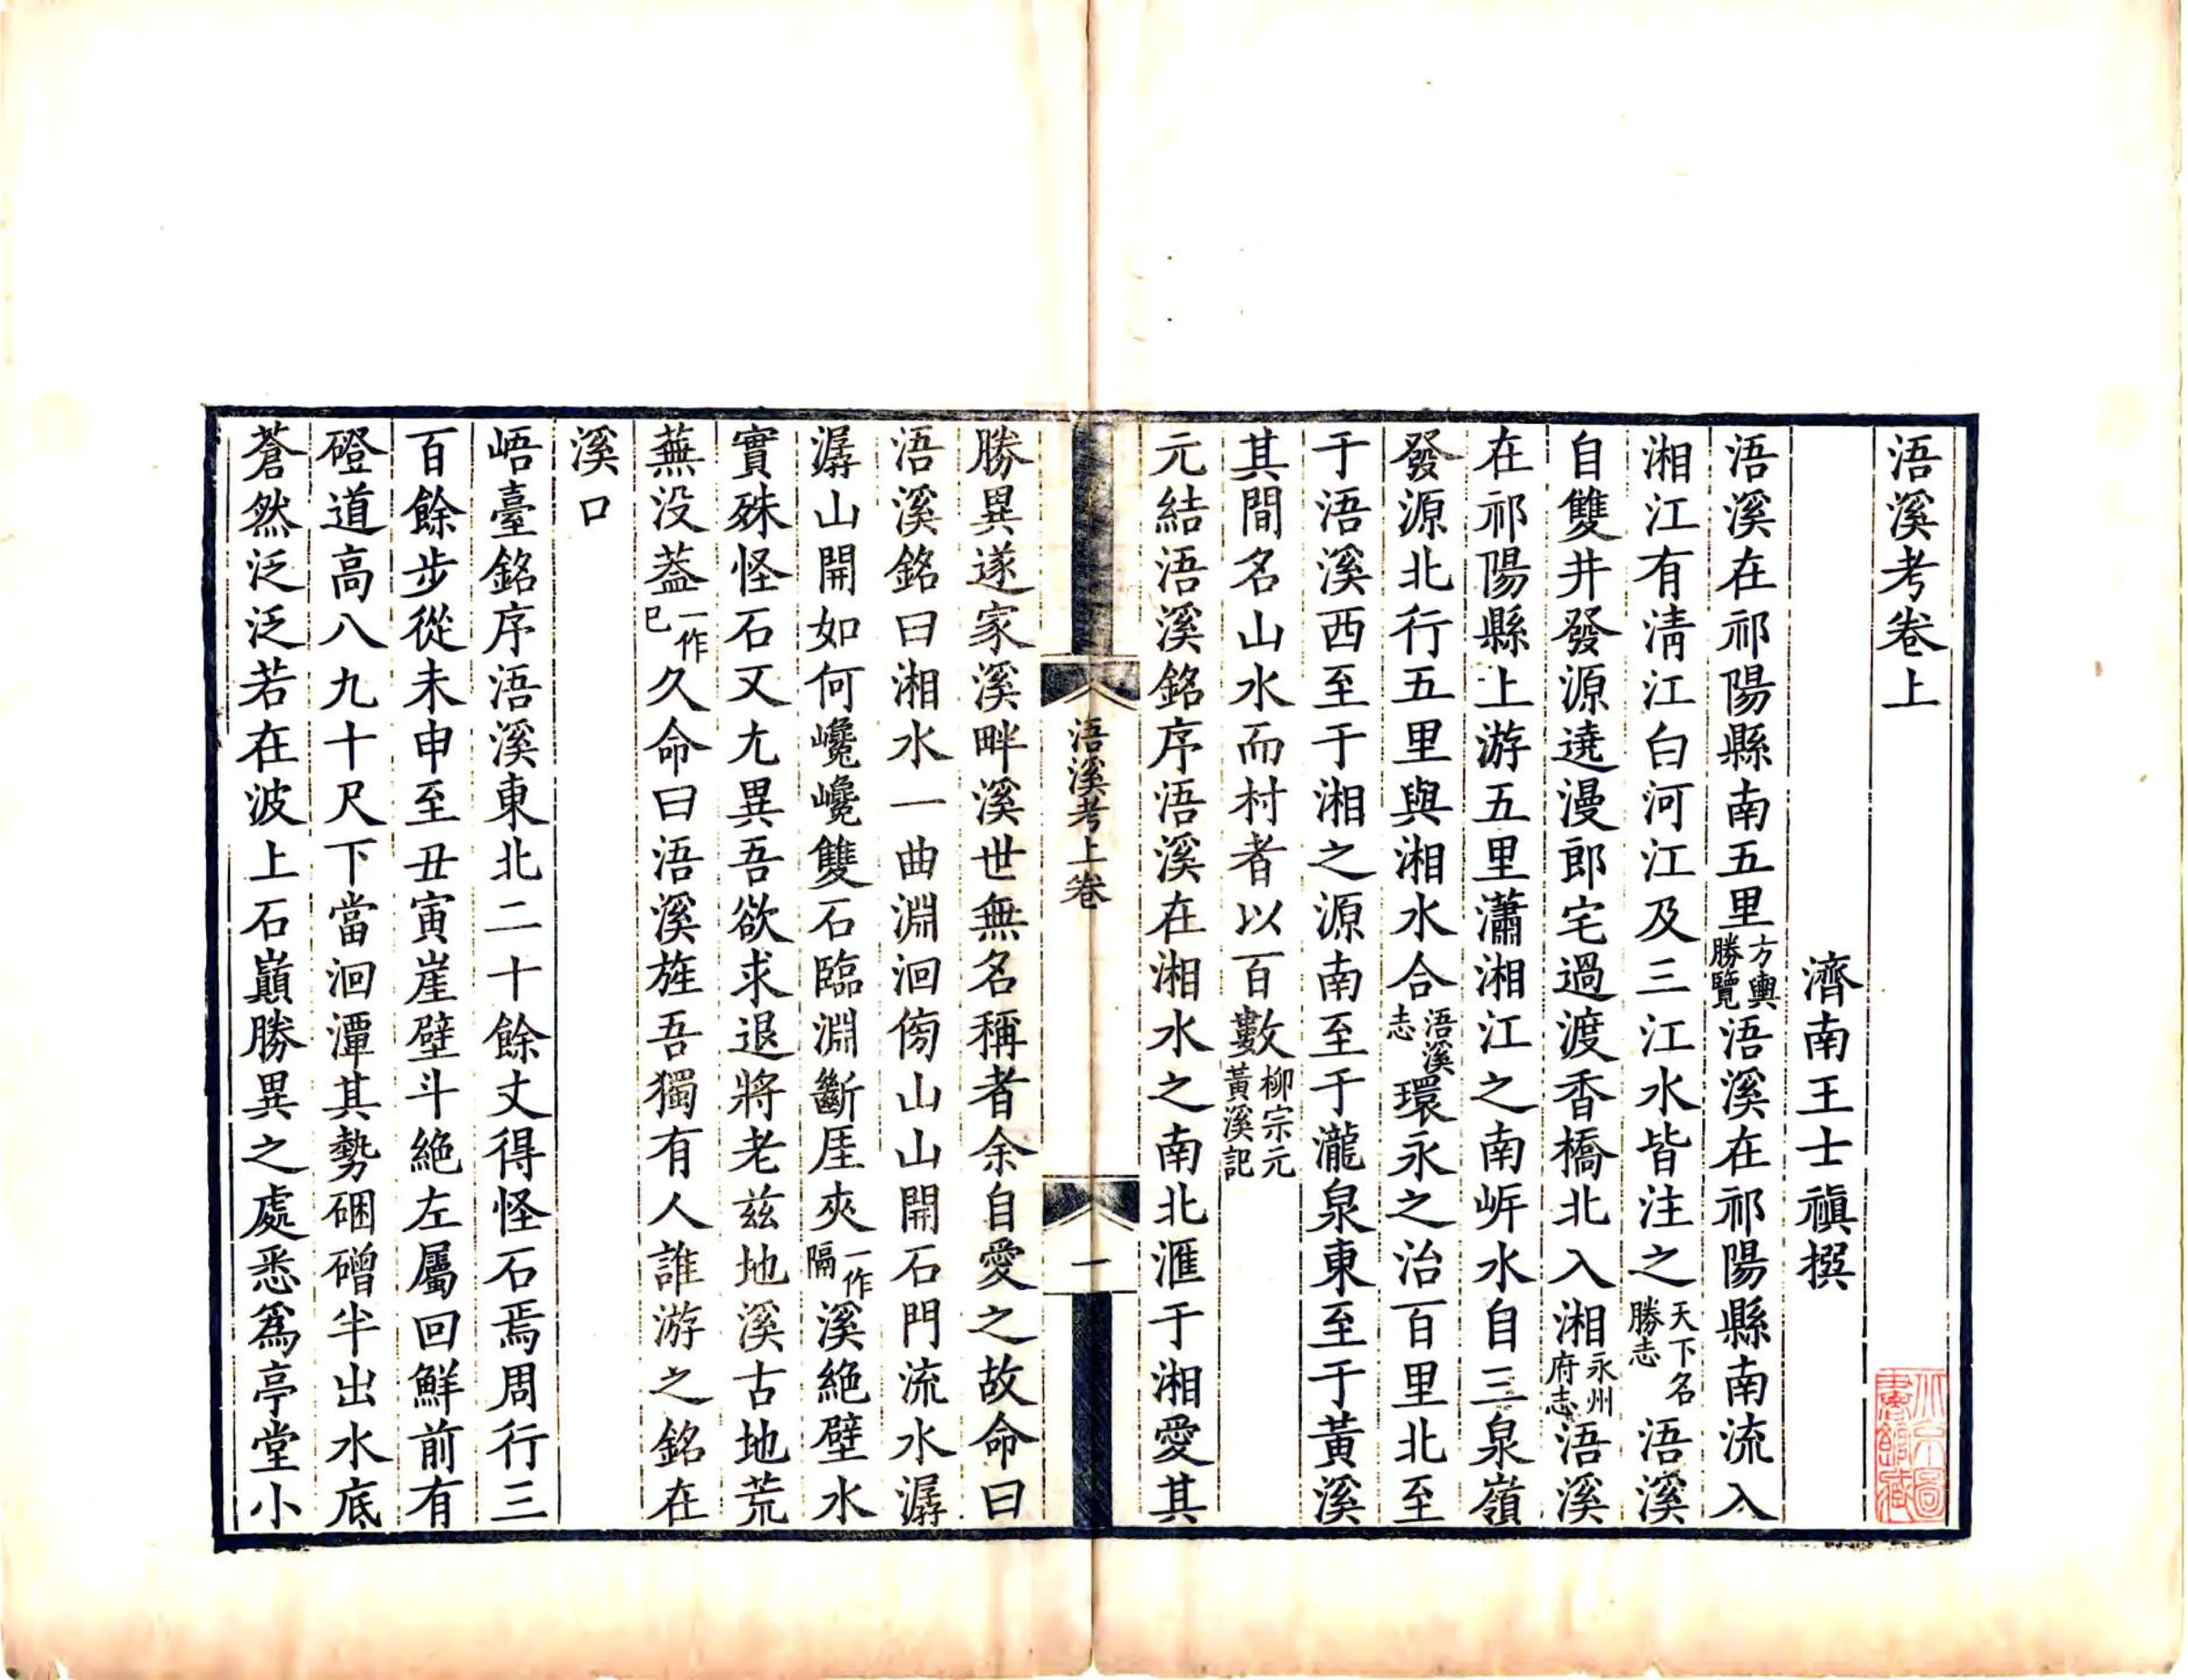 浯溪考卷上
濟南王士禛撰
浯溪在祁陽縣南五里方輿勝覽浯溪在祁陽縣南流入
湘江有淸江白河江及三江水皆注之天下名勝志浯溪
自雙井發源遶漫郎宅過渡香橋北入湘永州府志浯溪
在祁陽縣上游五里瀟湘江之南岸水自三泉嶺
發源北行五里與湘水合浯溪志環永之治百里北至
于浯溪西至于湘之源南至于瀧泉東至于黃溪
其間名山水而村者以百數柳宗元黃溪記
元結浯溪銘序浯溪在湘水之南北滙于湘愛其
浯溪考上卷
一
勝異遂家溪畔溪世無名稱者余自愛之故命曰
浯溪銘曰湘水一曲淵洄傍山山開石門流水潺
潺山開如何巉巉雙石臨淵斷厓夾一作隔溪絶壁水
實殊怪石又尢異吾欲求退將老兹地溪古地荒
蕪没葢一作已久命曰浯溪旌吾獨有人誰游之銘在
溪口
峿臺銘序浯溪東北二十餘丈得怪石焉周行三
百餘步從未申至丑寅崖壁斗絶左屬回鮮前有
磴道高八九十尺下當洄潭其勢硱磳半出水底
蒼然泛泛若在波上石巓勝異之處悉爲亭堂小